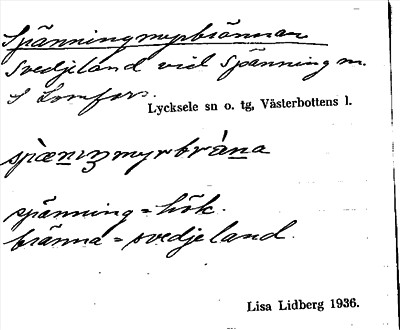 Spänningmyrbrännan
Svedjeland vid Spänningm.
S Lomfors.
Lycksele sn o. tg, Västerbottens l.
spænıŋmyrbràna
spänning = hök.
bränna = svedjeland.
Lisa Lidberg 1936.